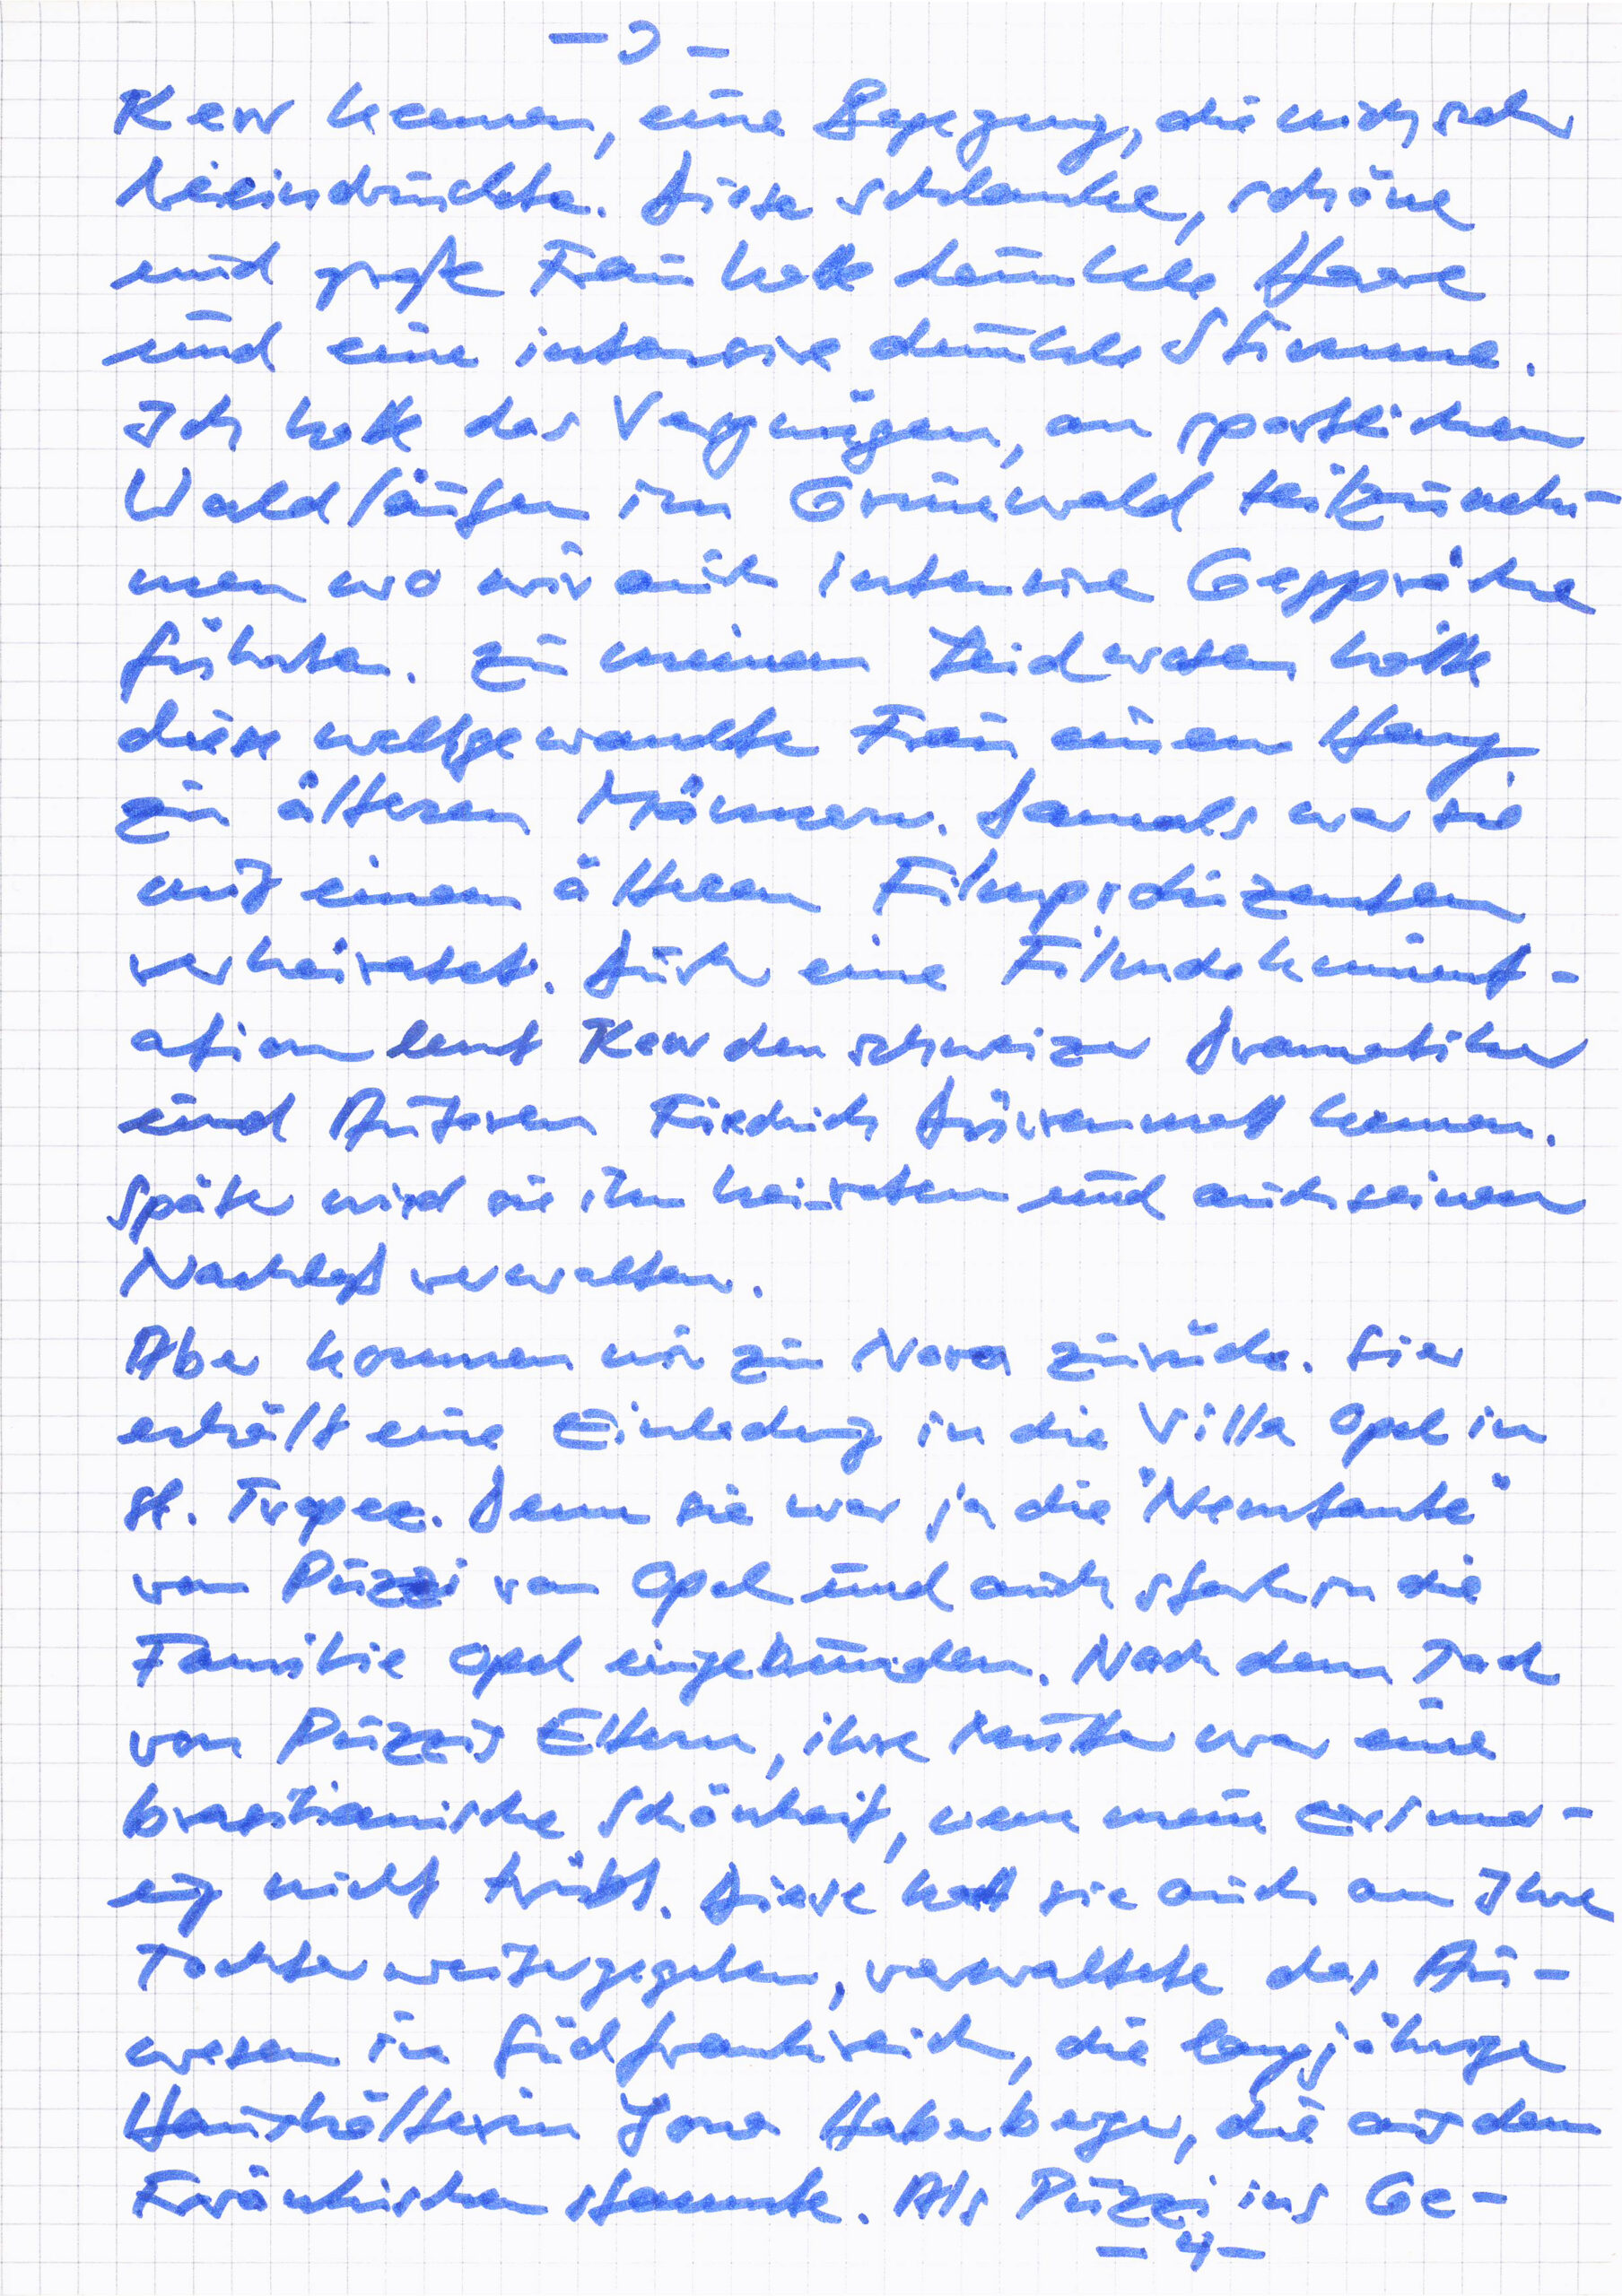 - 3 -
Kerr kennen, eine Begegnung, die mich sehr
beeindruckte. Diese schlanke, schöne
und große Frau hatte dunkle Haare
und eine intensive dunkle Stimme.
Ich hatte das Vergnügen, an sportlichen
Waldläufen im Grunewald teilzuneh-
men wo wir auch intensive Gespräche
führten. Zu meinem Leidwesen hatte
diese weltgewandte Frau einen Hang
zu älteren Männern. Damals war sie
mit einem älteren Filmproduzenten
verheiratet. Durch eine Filmdokument-
ation lernt Kerr den schweizer Dramatiker
und Autoren Friedrich Dürrenmatt kennen.
Später wird sie ihn heiraten und auch seinen
Nachlaß verwalten.
Aber kommen wir zu Nora zurück. Sie
erhält eine Einladung in die Villa Opel in
St. Tropez. Denn sie war ja die "Nenntante"
von Puzzi von Opel und auch stark in die
Familie Opel eingebunden. Nach dem Tod
von Puzzis Eltern, ihre Mutter war eine
brasilianische Schönheit, wenn meine Erinner-
ung nicht trübt. Diese hat sie auch an Ihre
Tochter weitergegeben, verwaltete das An-
wesen in Südfrankreich, die langjährige
Haushälterin Jona Haberberger, die aus dem
Fränkischen stammte. Als Puzzi ins Ge-
- 4 -